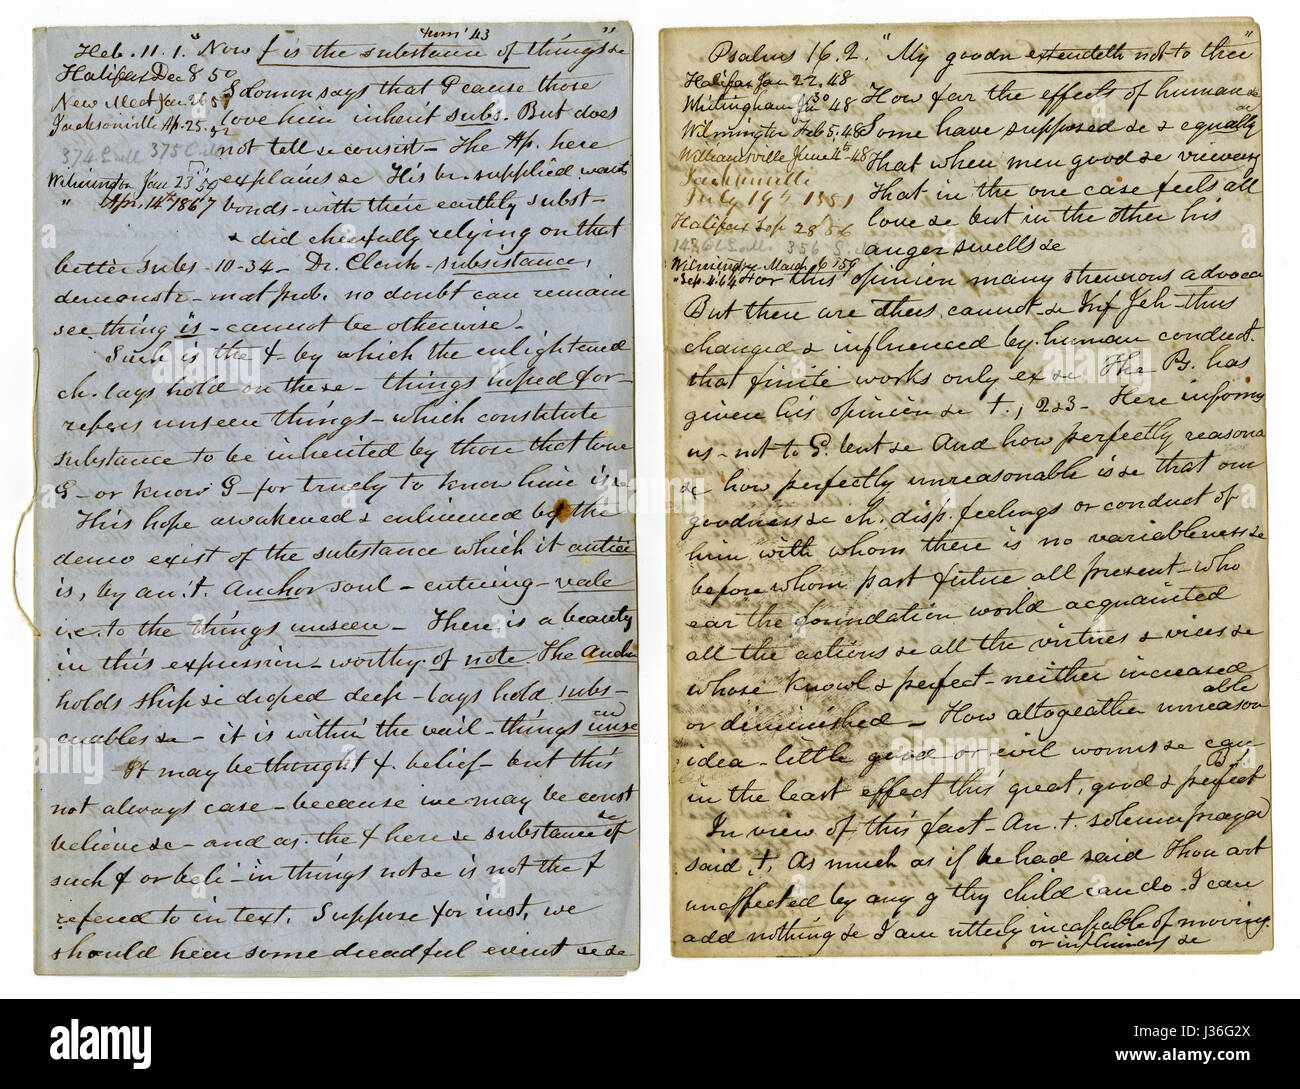 Serm' 43
Heb. 11. 1. "Now f is the substance of things &c"
Halifax Dec 8 50
Solomon says that G cause those
New Meet Jan 26 51
love him inherit subs. But does
Jacksonville Ap. 25. 52
not tell &c consist - The Ap. here
374 S 375 C
Wilmington Jan 23 59
explains &c His br. supplied wants
" Apr. 14th 1867
bonds - with their earthly subst -
& did cheerfully relying on that
better subs - 10-34 - Dr. Clark - subsistance,
demonstr - mat pub. no doubt can remain
see thing is - cannot be otherwise -
Such is the f - by which the enlightened
ch. lays hold on these - things hoped for -
refers unseen things - which constitute
substance to be inherited by those that love
G - or know G - for truely to know him is &c
This hope awakened & enlivened by the
demo exist of the substance which it antici
is, by an't. Anchor soul - entering - vale
i.e. to the things unseen - There is a beauty
in this expression - worthy of note. The Anchor
holds ship &c droped deep - lays hold subs -
enables &c - it is within the vail - things unse
It may be thought f. belief - but this
not always case - because we may be const
believe &c - and as the f here &c substance of
such f or beli - in things not &c is not the f
refered to in text. Suppose for inst. we
should hear some dreadful event &c &c
Psalms 16. 2. "My goodn extendeth not to thee"
Halifax Jan 22. 48
How far the effects of human &c
Whitingham Ja 30 48
Wilmington Feb 5. 48
Some have supposed &c & equally
Williamsville June 4th 48
That when men good &c vicevery
Jacksonville
That in the one case feels all
July 19th 1851
love &c but in the other his
Halifax Sep 28 56
anger swells &c
356 S
Wilmington March 6 59
"Sep. 4. 64
For this opinion many strenuous advoca
But there are others cannot &c Inf Jeh - thus
changed & influenced by human conduct.
that finite works only ex &c The Ps. has
given his opinion &c t., 2&3 - Here informs
us - not to G. but &c And how perfectly reasona
&c how perfectly unreasonable is &c that our
goodness &c ch. disp. feelings or conduct of
him with whom there is no variableness &c
before whom past future all present - who
ear the foundation world acquainted
all the actions &c all the virtues & vices &c
whose knowl & perfect - neither increased
or diminished - How altogeather unreason
able
idea - little good or evil worms &c can
in the least effect this great, good & perfect
Bg
In view of this fact - An. t. solemn praya
said, t. As much as if he had said Thou art
unaffected by any g thy child can do - I can
add nothing &c I am utterly incapable of moving
or influencing &c
alamy stock photo
alamy
a
J36G2X
www.alamy.com